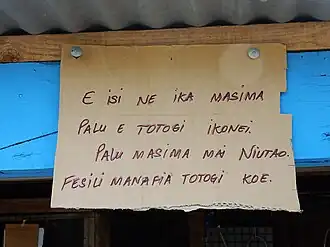 E iSi NE iKA MASiMA
PALU E TOTOGi iKONEi.
PALU MASiMA MAi NiUTAO.
FESiLi MANAFiA TOTOGi KOE.